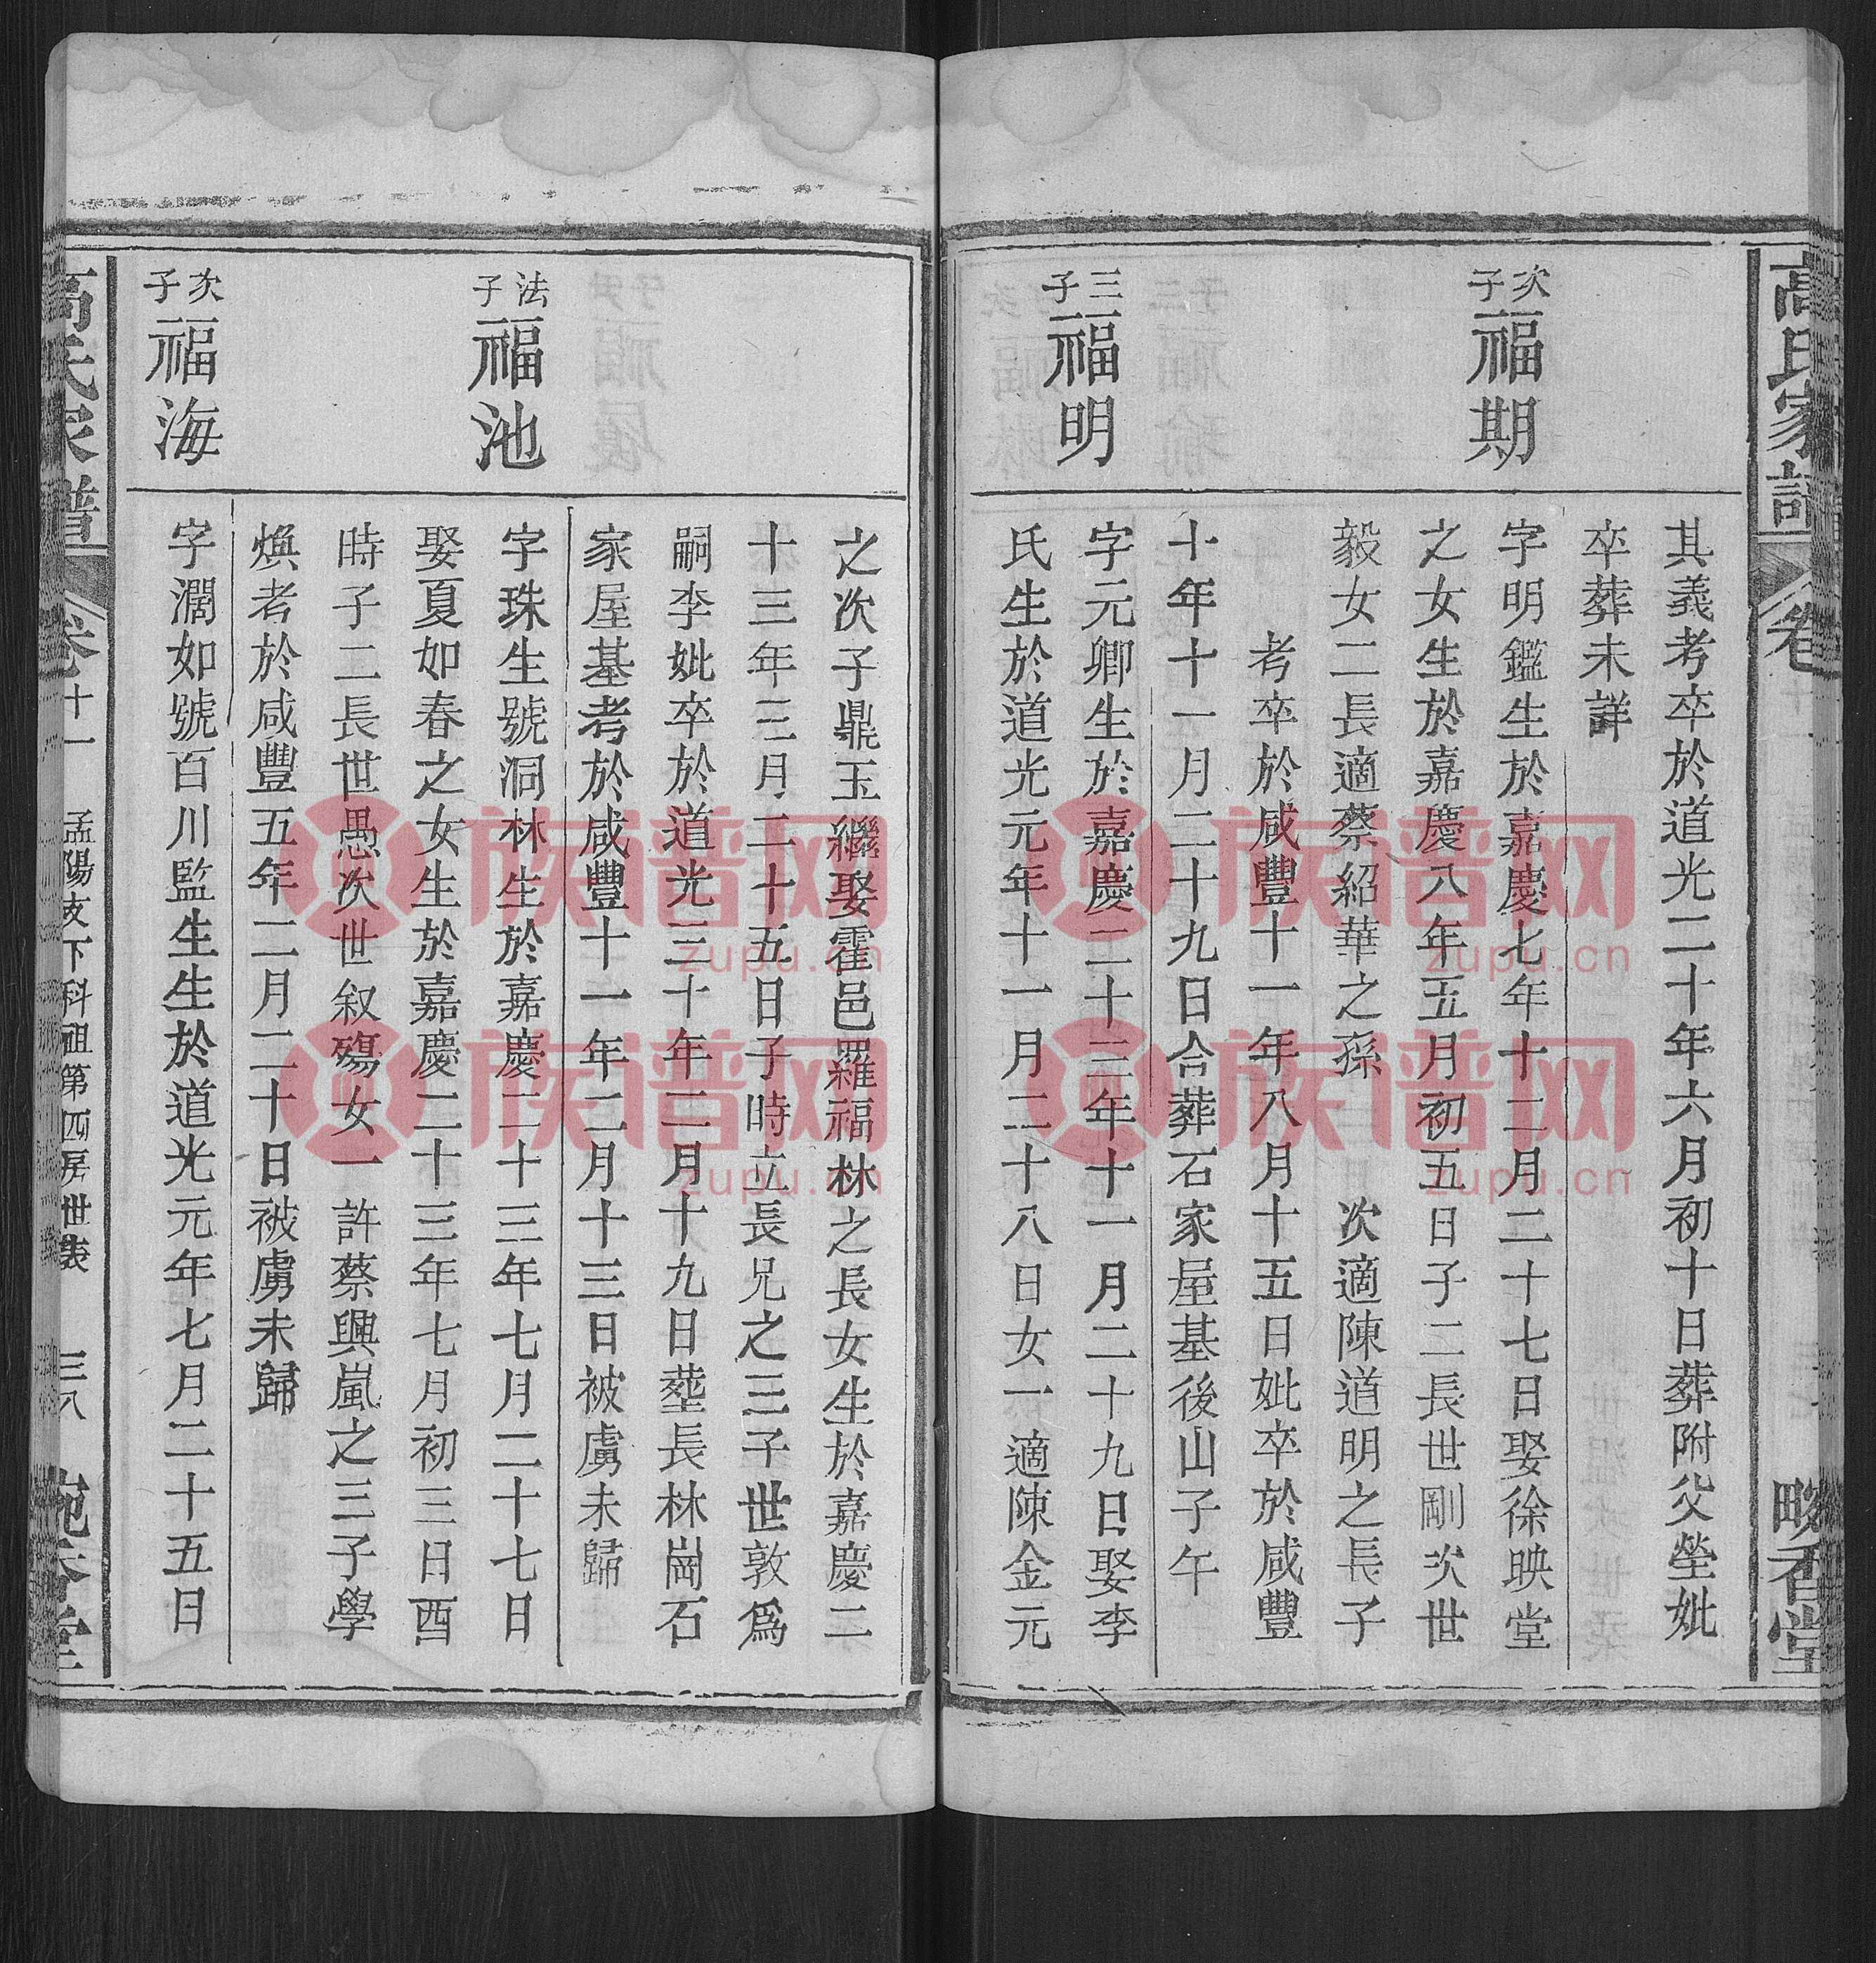 高氏家譜
卷
畹香堂
其義考卒於道光二十年六月初十日葬附父塋妣
卒葬未詳
次子福期
字明鑑生於嘉慶七年十二月二十七日娶徐映堂
之女生於嘉慶八年五月初五日子二長世剛次世
毅女二長適蔡紹華之孫 次適陳道明之長子
考卒於咸豐十一年八月十五日妣卒於咸豐
十年十一月二十九日合葬石家屋基後山子午
三子福明
字元卿生於嘉慶二十三年十一月二十九日娶李
氏生於道光元年十一月二十八日女一適陳金元
之次子鼎玉繼娶霍邑羅福林之長女生於嘉慶二
十三年三月二十五日子時立長兄之三子世敦爲
嗣李妣卒於道光三十年二月十九日塟長林崗石
家屋基考於咸豐十一年二月十三日被虜未歸
法子福池
字珠生號洞林生於嘉慶二十三年七月二十七日
娶夏如春之女生於嘉慶二十三年七月初三日酉
時子二長世愚次世叙殤女一 許蔡興嵐之三子學
煥者於咸豐五年二月二十日被虜未歸
次子福海
字濶如號百川監生生於道光元年七月二十五日
高氏家譜
卷十一 孟陽支下科祖第四房世表 三八
畹香堂
族谱网
zupu.cn
族谱网
zupu.cn
族谱网
zupu.cn
族谱网
zupu.cn